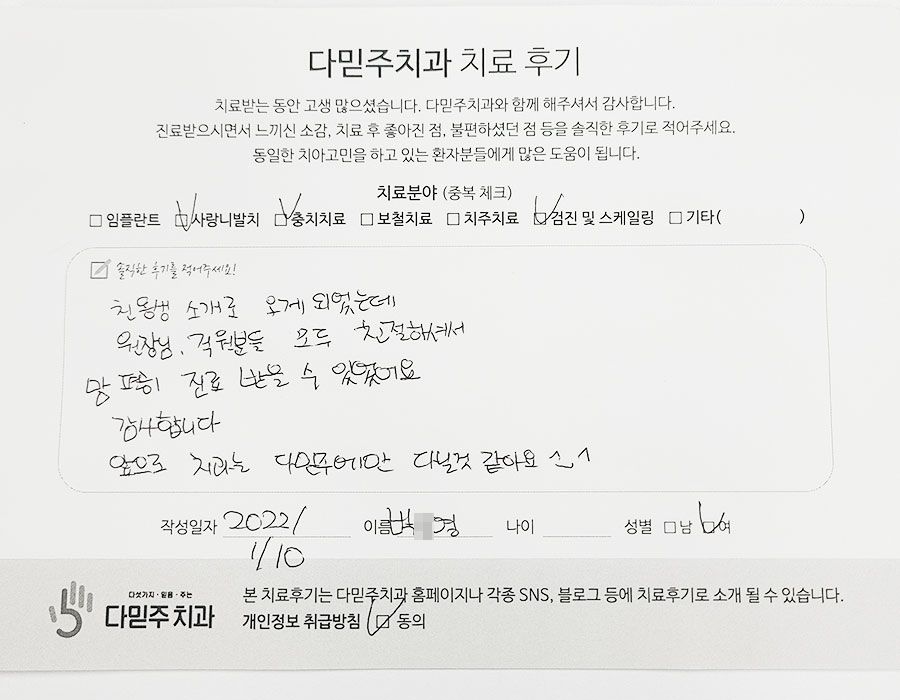 다믿주치과 치료 후기
치료받는 동안 고생 많으셨습니다. 다믿주치과와 함께 해주셔서 감사합니다.
진료받으시면서 느끼신 소감, 치료 후 좋아진 점, 불편하셨던 점 등을 솔직한 후기로 적어주세요.
동일한 치아고민을 하고 있는 환자분들에게 많은 도움이 됩니다.
치료분야 (중복 체크)
□ 임플란트 ☑ 사랑니발치 ☑ 충치치료 □ 보철치료 □ 치주치료 ☑ 검진 및 스케일링 □ 기타( )
솔직한 후기를 적어주세요!
친동생 소개로 오게 되었는데
원장님, 직원분들 모두 친절하셔서
맘 편히 진료 받을 수 있었어요
감사합니다
앞으로 치과는 다믿주에만 다닐것 같아요 ^_^
작성일자 2022/ 이름 박 영 나이 성별 □ 남 ☑ 여
1/10
다섯가지·믿음·주는
다믿주 치과
본 치료후기는 다믿주치과 홈페이지나 각종 SNS, 블로그 등에 치료후기로 소개 될 수 있습니다.
개인정보 취급방침 ☑ 동의